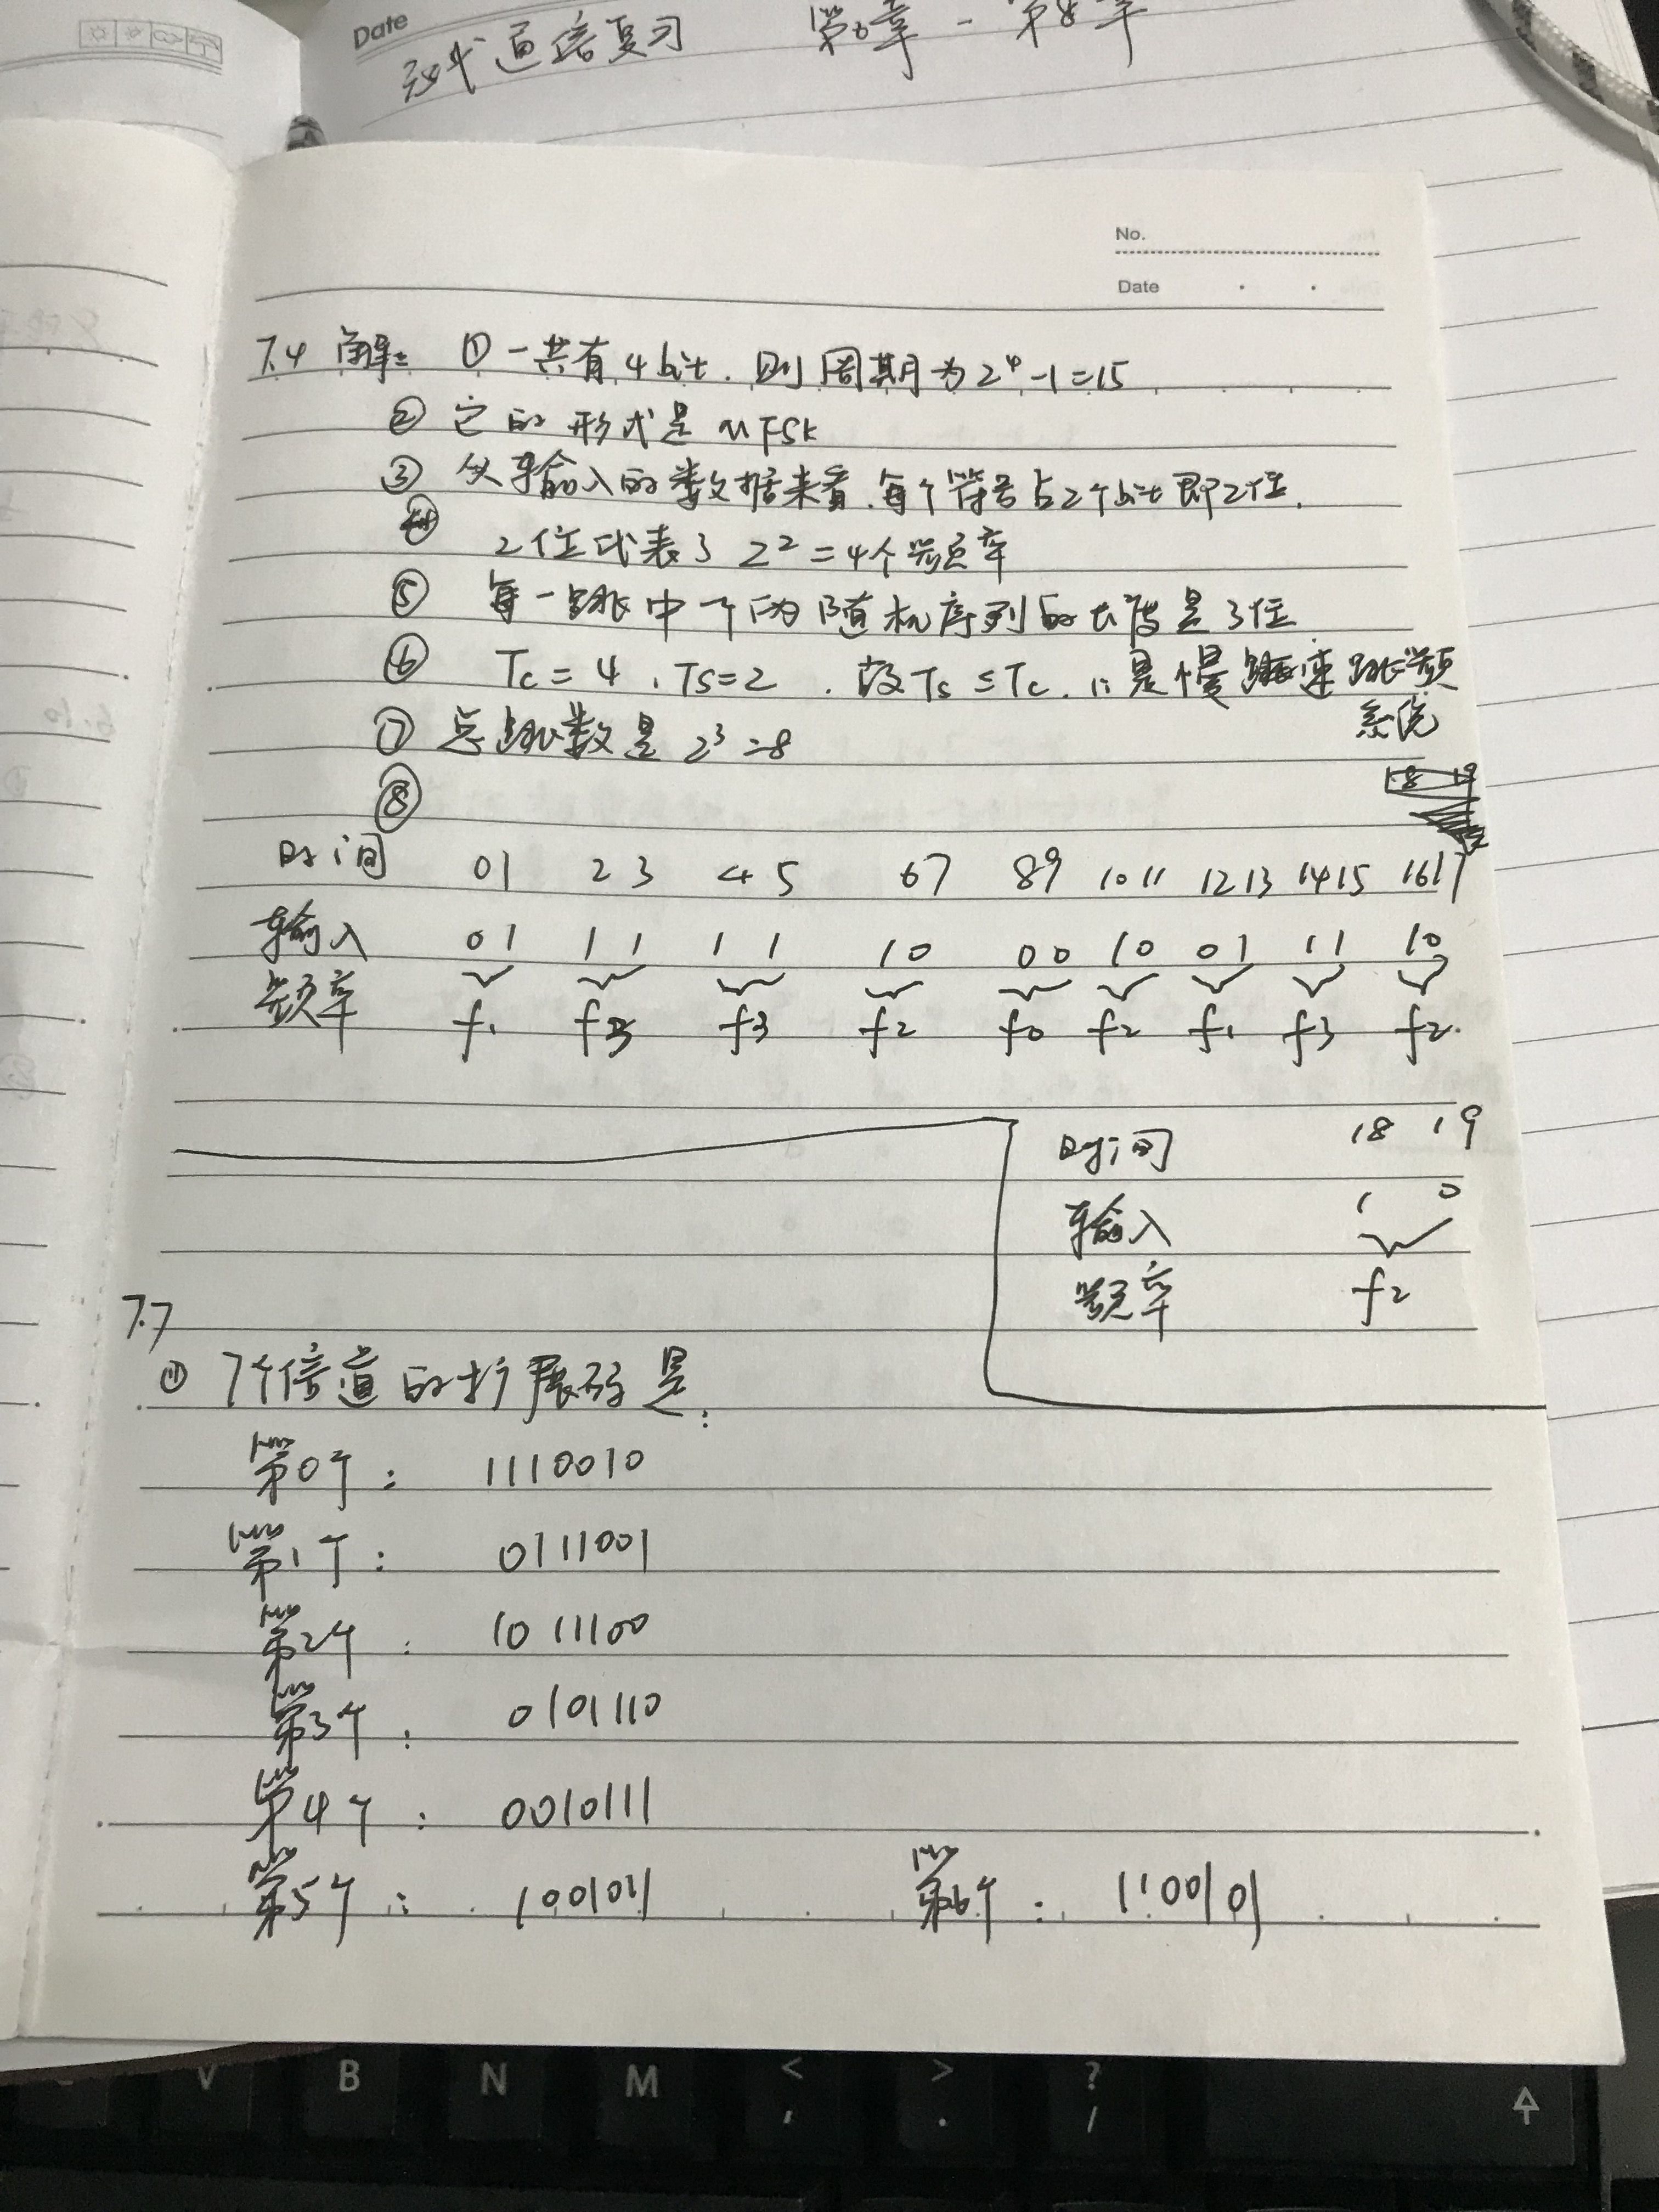 Date
通信复习 第6章 - 第8章
No.
Date
7.4 解: ① 一共有 4 bit. 则周期为 2⁴-1=15
② 它的形式是 MFSK
③ 从输入的数据来看.每个符号占2个bit 即2位.
④ 2位代表了 2² = 4个频率
⑤ 每一跳中一个伪随机序列的长度是3位
⑥ Tc = 4 , Ts=2 . 故 Ts ≤ Tc . ∴是慢速跳频
系统
⑦ 总跳数是 2³=8
18 19
⑧
时间 01 23 45 67 89 10 11 12 13 14 15 16 17
输入 01 11 11 10 00 10 01 11 10
频率 f1 f3 f3 f2 f0 f2 f1 f3 f2.
时间 18 19
输入 1 0
频率 f2
7.7
① 7个信道的扩展码是:
第0个: 1110010
第1个: 0111001
第2个: 1011100
第3个: 0101110
第4个: 0010111
第5个: 1001011 第6个: 1100101
V B N M < , > . ? /